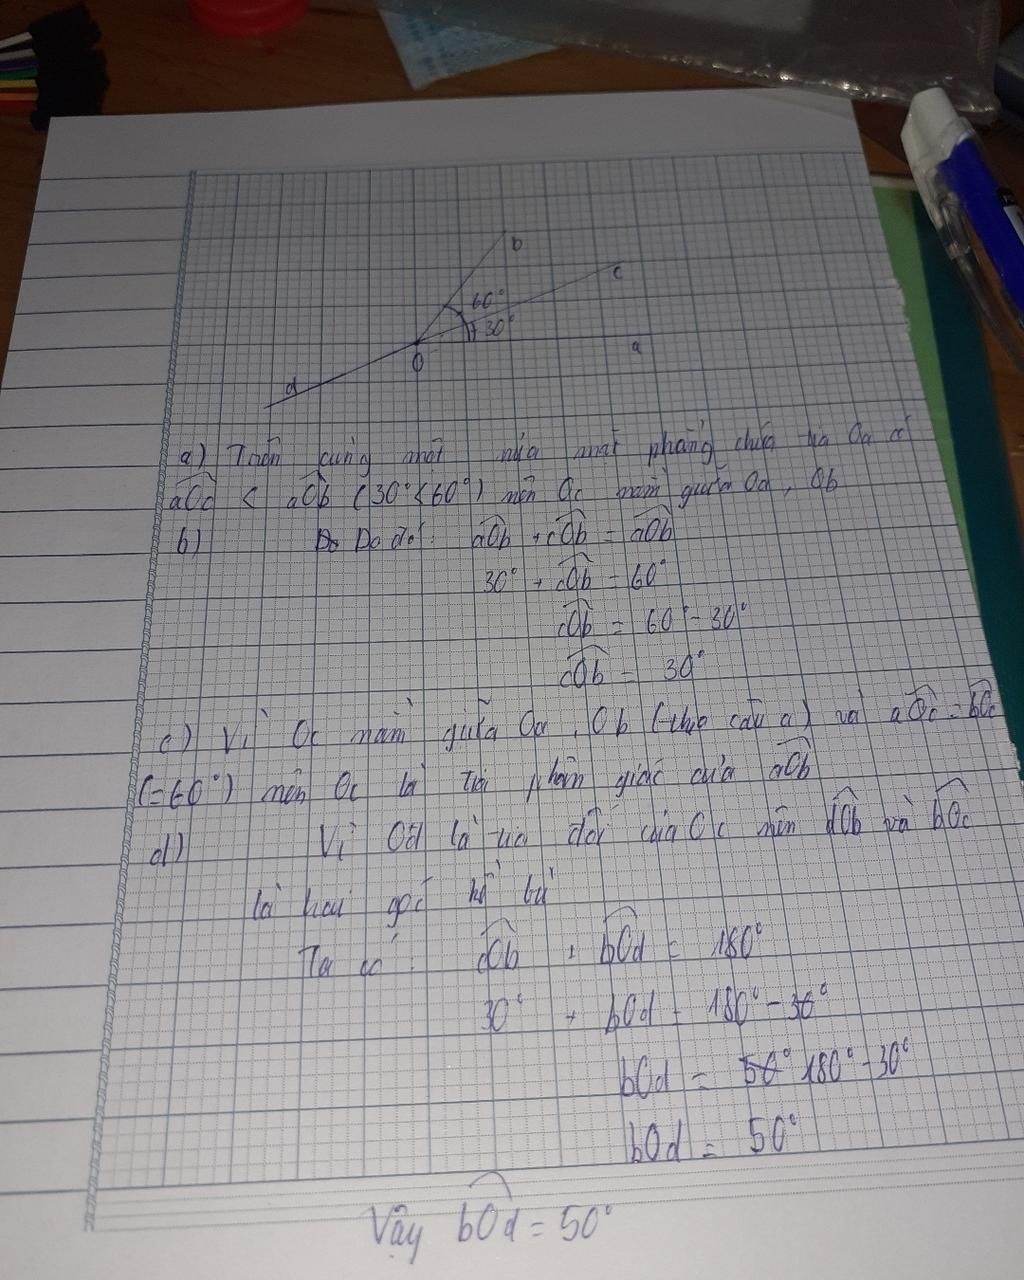 b
c
60°
30°
a
O
d
a) Trên cùng một nửa mặt phẳng chứa tia Oa có
aOc < aOb (30° < 60°) nên Oc nằm giữa Oa, Ob
b) Do Do đó: aOb + cOb = aOb
30° + cOb = 60°
cOb = 60° - 30°
cOb = 30°
c) Vì Oc nằm giữa Oa, Ob (theo câu a) và aOc = bOc
(= 60°) nên Oc là tia phân giác của aOb
d) Vì Od là tia đối của Oc nên dOb và bOc
là hai góc kề bù
Ta có: cOb + bOd = 180°
30° + bOd = 180° - 30°
bOd = 50° 180° - 30°
bOd = 50°
Vậy bOd = 50°